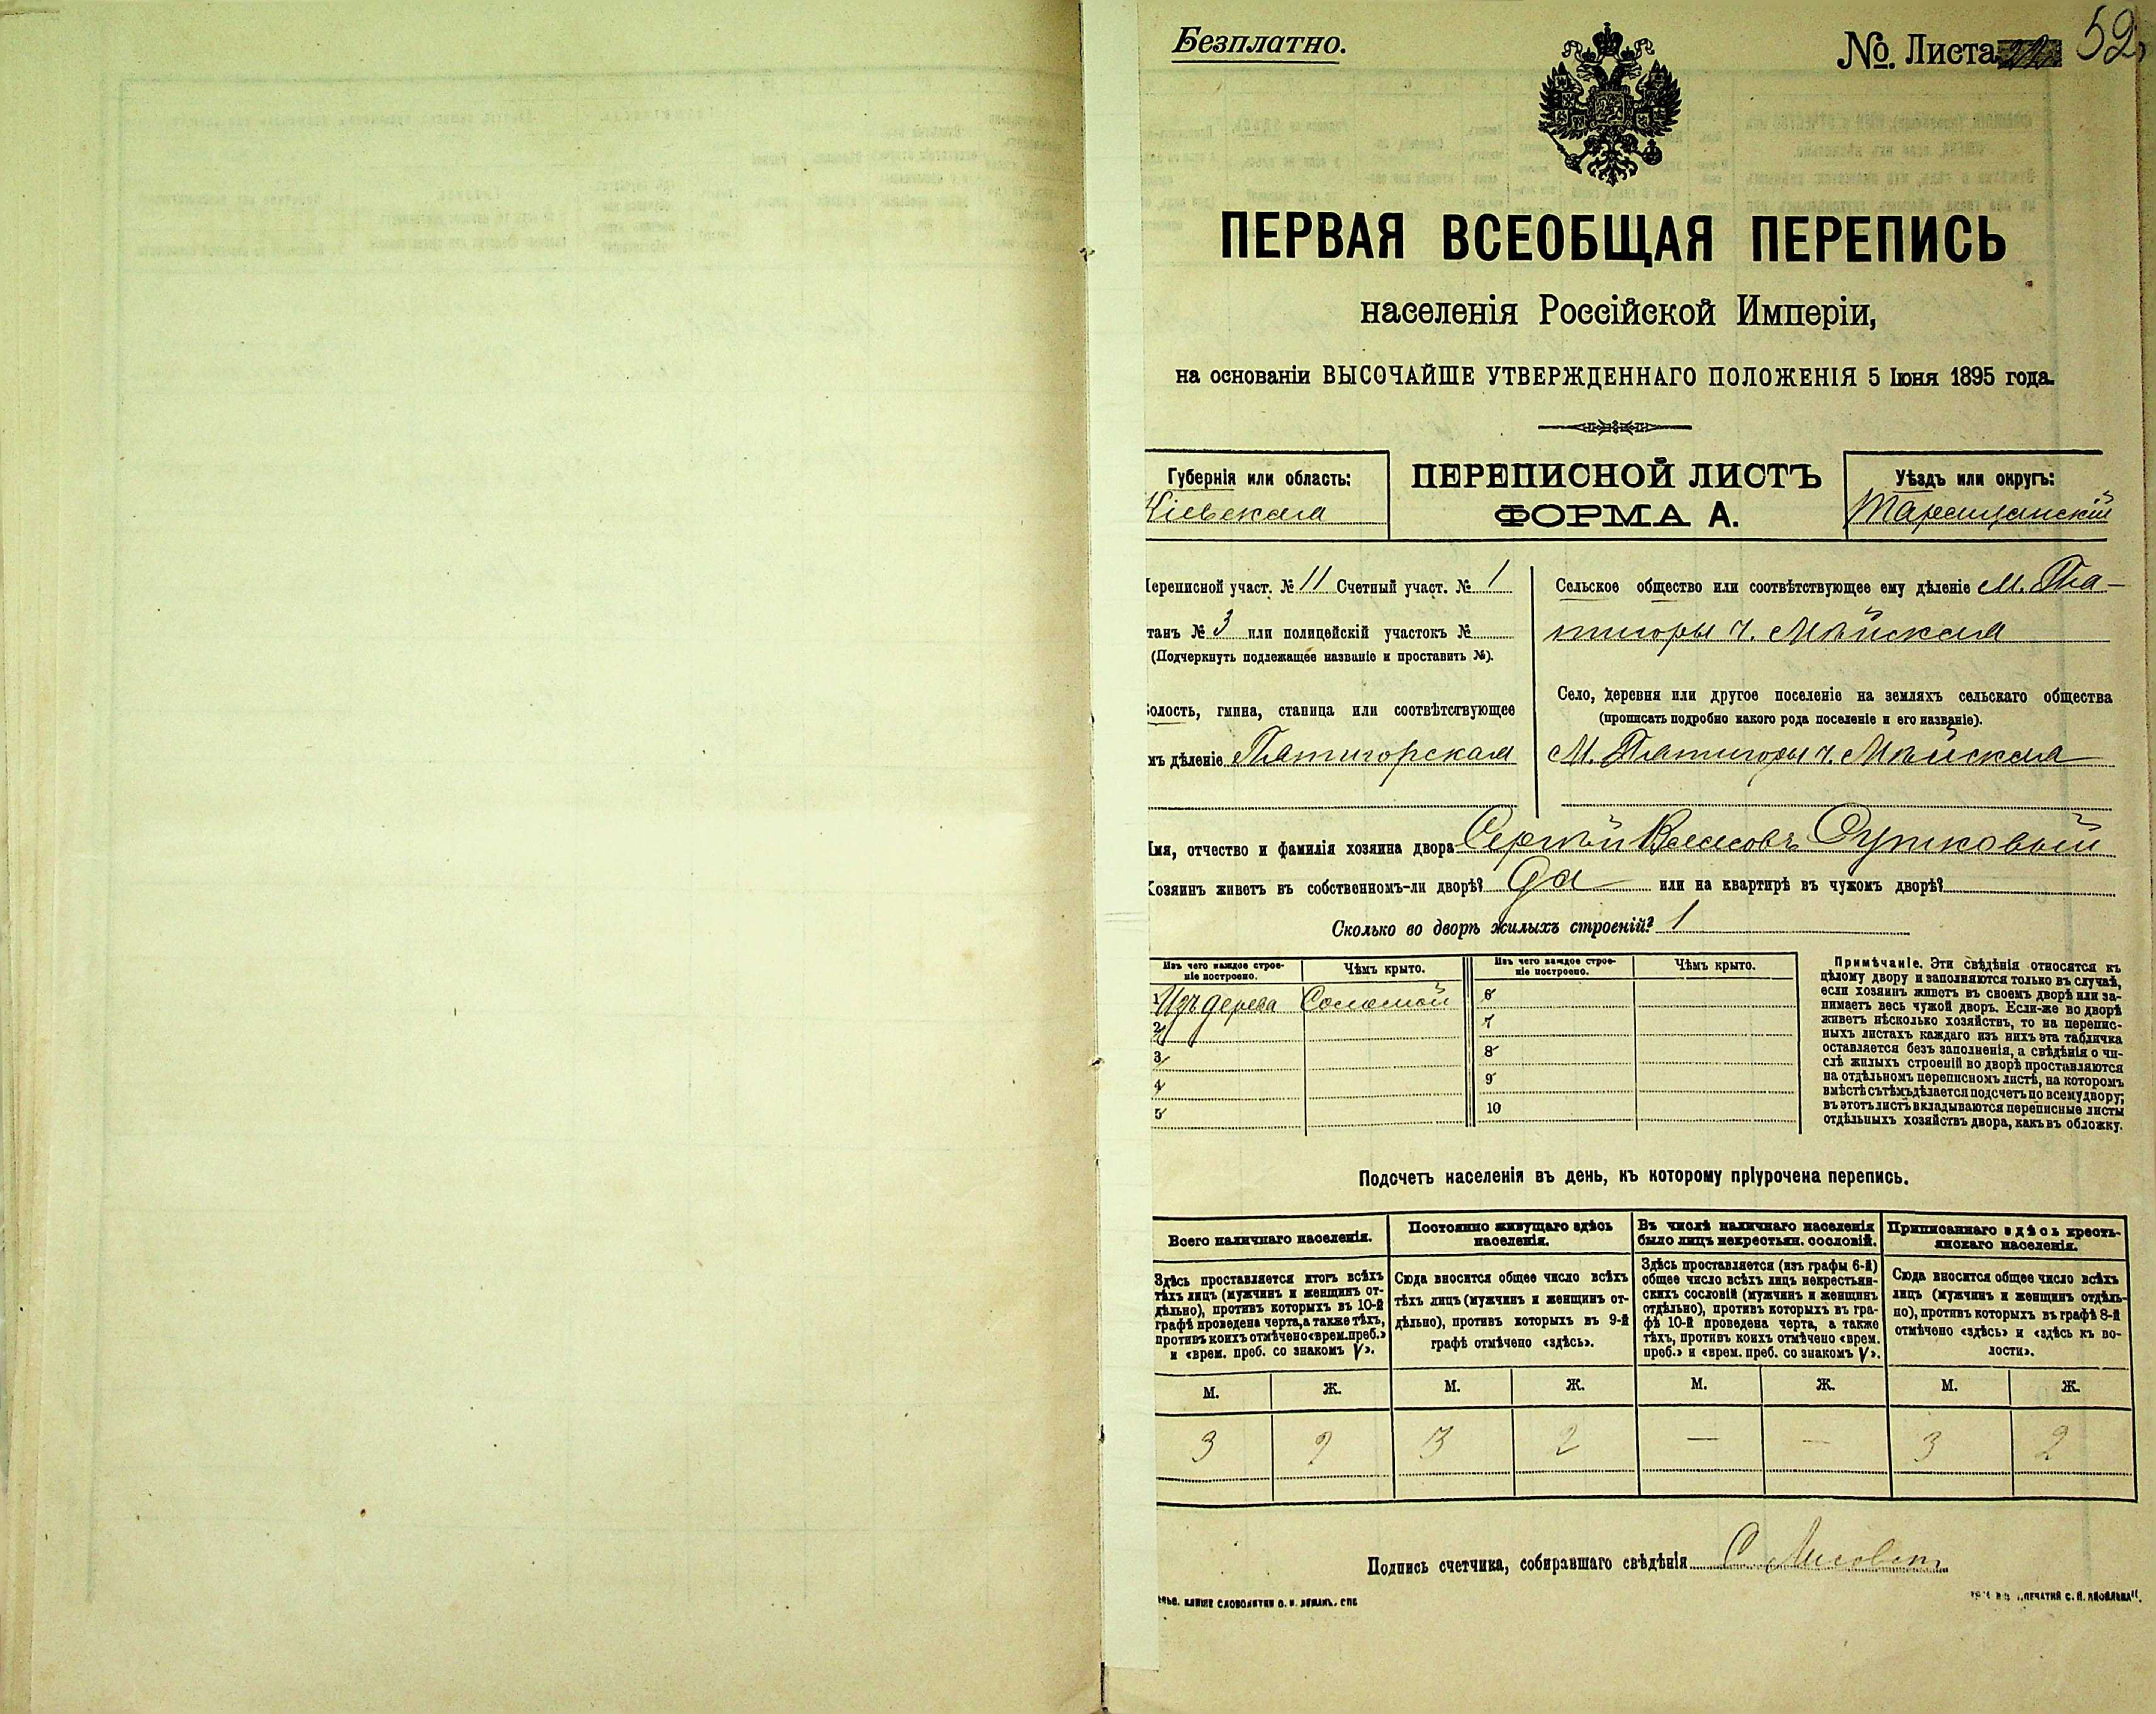 Безплатно.
№. Листа 52
ПЕРВАЯ ВСЕОБЩАЯ ПЕРЕПИСЬ
населенія Россійской Имперіи,
на основаніи ВЫСОЧАЙШЕ УТВЕРЖДЕННАГО ПОЛОЖЕНІЯ 5 Іюня 1895 года.
Губернія или область:
Кіевская
ПЕРЕПИСНОЙ ЛИСТЪ
ФОРМА А.
Уѣздъ или округъ:
Таращанскій
Переписной участ. № 11 Счетный участ. № 1
танъ № 3 или полицейскій участокъ №
(Подчеркнуть подлежащее названіе и проставить №).
олость, гмина, станица или соотвѣтствующее
мъ дѣленіе Пятигорская
Сельское общество или соотвѣтствующее ему дѣленіе М. Пя-
тигоры ч.
Село, деревня или другое поселеніе на земляхъ сельскаго общества
(прописать подробно какого рода поселеніе и его названіе).
М. Пятигоры ч.
Имя, отчество и фамилія хозяина двора Сергѣй
Хозяинъ живетъ въ собственномъ-ли дворѣ? Да или на квартирѣ въ чужомъ дворѣ?
Сколько во дворѣ жилыхъ строеній? 1
Изъ чего каждое строе-
ніе построено.
Чѣмъ крыто.
Изъ чего каждое строе-
ніе построено.
Чѣмъ крыто.
1 Изъ дерева Соломой
2
3
4
5
6
7
8
9
10
Примѣчаніе. Эти свѣдѣнія относятся къ
цѣлому двору и заполняются только въ случаѣ,
если хозяинъ живетъ въ своемъ дворѣ или за-
нимаетъ весь чужой дворъ. Если-же во дворѣ
живетъ нѣсколько хозяйствъ, то на перепис-
ныхъ листахъ каждаго изъ нихъ эта табличка
оставляется безъ заполненія, а свѣдѣнія о чи-
слѣ жилыхъ строеній во дворѣ проставляются
на отдѣльномъ переписномъ листѣ, на которомъ
вмѣстѣ съ тѣмъ дѣлается подсчетъ по всему двору;
въ этотъ листъ вкладываются переписные листы
отдѣльныхъ хозяйствъ двора, какъ въ обложку.
Подсчетъ населенія въ день, къ которому пріурочена перепись.
Всего наличнаго населенія.
Здѣсь проставляется итогъ всѣхъ
тѣхъ лицъ (мужчинъ и женщинъ от-
дѣльно), противъ которыхъ въ 10-й
графѣ проведена черта, а также тѣхъ,
противъ коихъ отмѣчено «врем. преб.»
и «врем. преб. со знакомъ V».
Постоянно живущаго здѣсь
населенія.
Сюда вносится общее число всѣхъ
тѣхъ лицъ (мужчинъ и женщинъ от-
дѣльно), противъ которыхъ въ 9-й
графѣ отмѣчено «здѣсь».
Въ числѣ наличнаго населенія
было лицъ некрестьян. сословій.
Здѣсь проставляется (изъ графы 6-й)
общее число всѣхъ лицъ некрестьян-
скихъ сословій (мужчинъ и женщинъ
отдѣльно), противъ которыхъ въ гра-
фѣ 10-й проведена черта, а также
тѣхъ, противъ коихъ отмѣчено «врем.
преб.» и «врем. преб. со знакомъ V».
Приписаннаго здѣсь кресть-
янскаго населенія.
Сюда вносится общее число всѣхъ
лицъ (мужчинъ и женщинъ отдѣль-
но), противъ которыхъ въ графѣ 8-й
отмѣчено «здѣсь» и «здѣсь къ во-
лости».
М. Ж. М. Ж. М. Ж. М. Ж.
3 2 3 2 — — 3 2
Подпись счетчика, собиравшаго свѣдѣнія